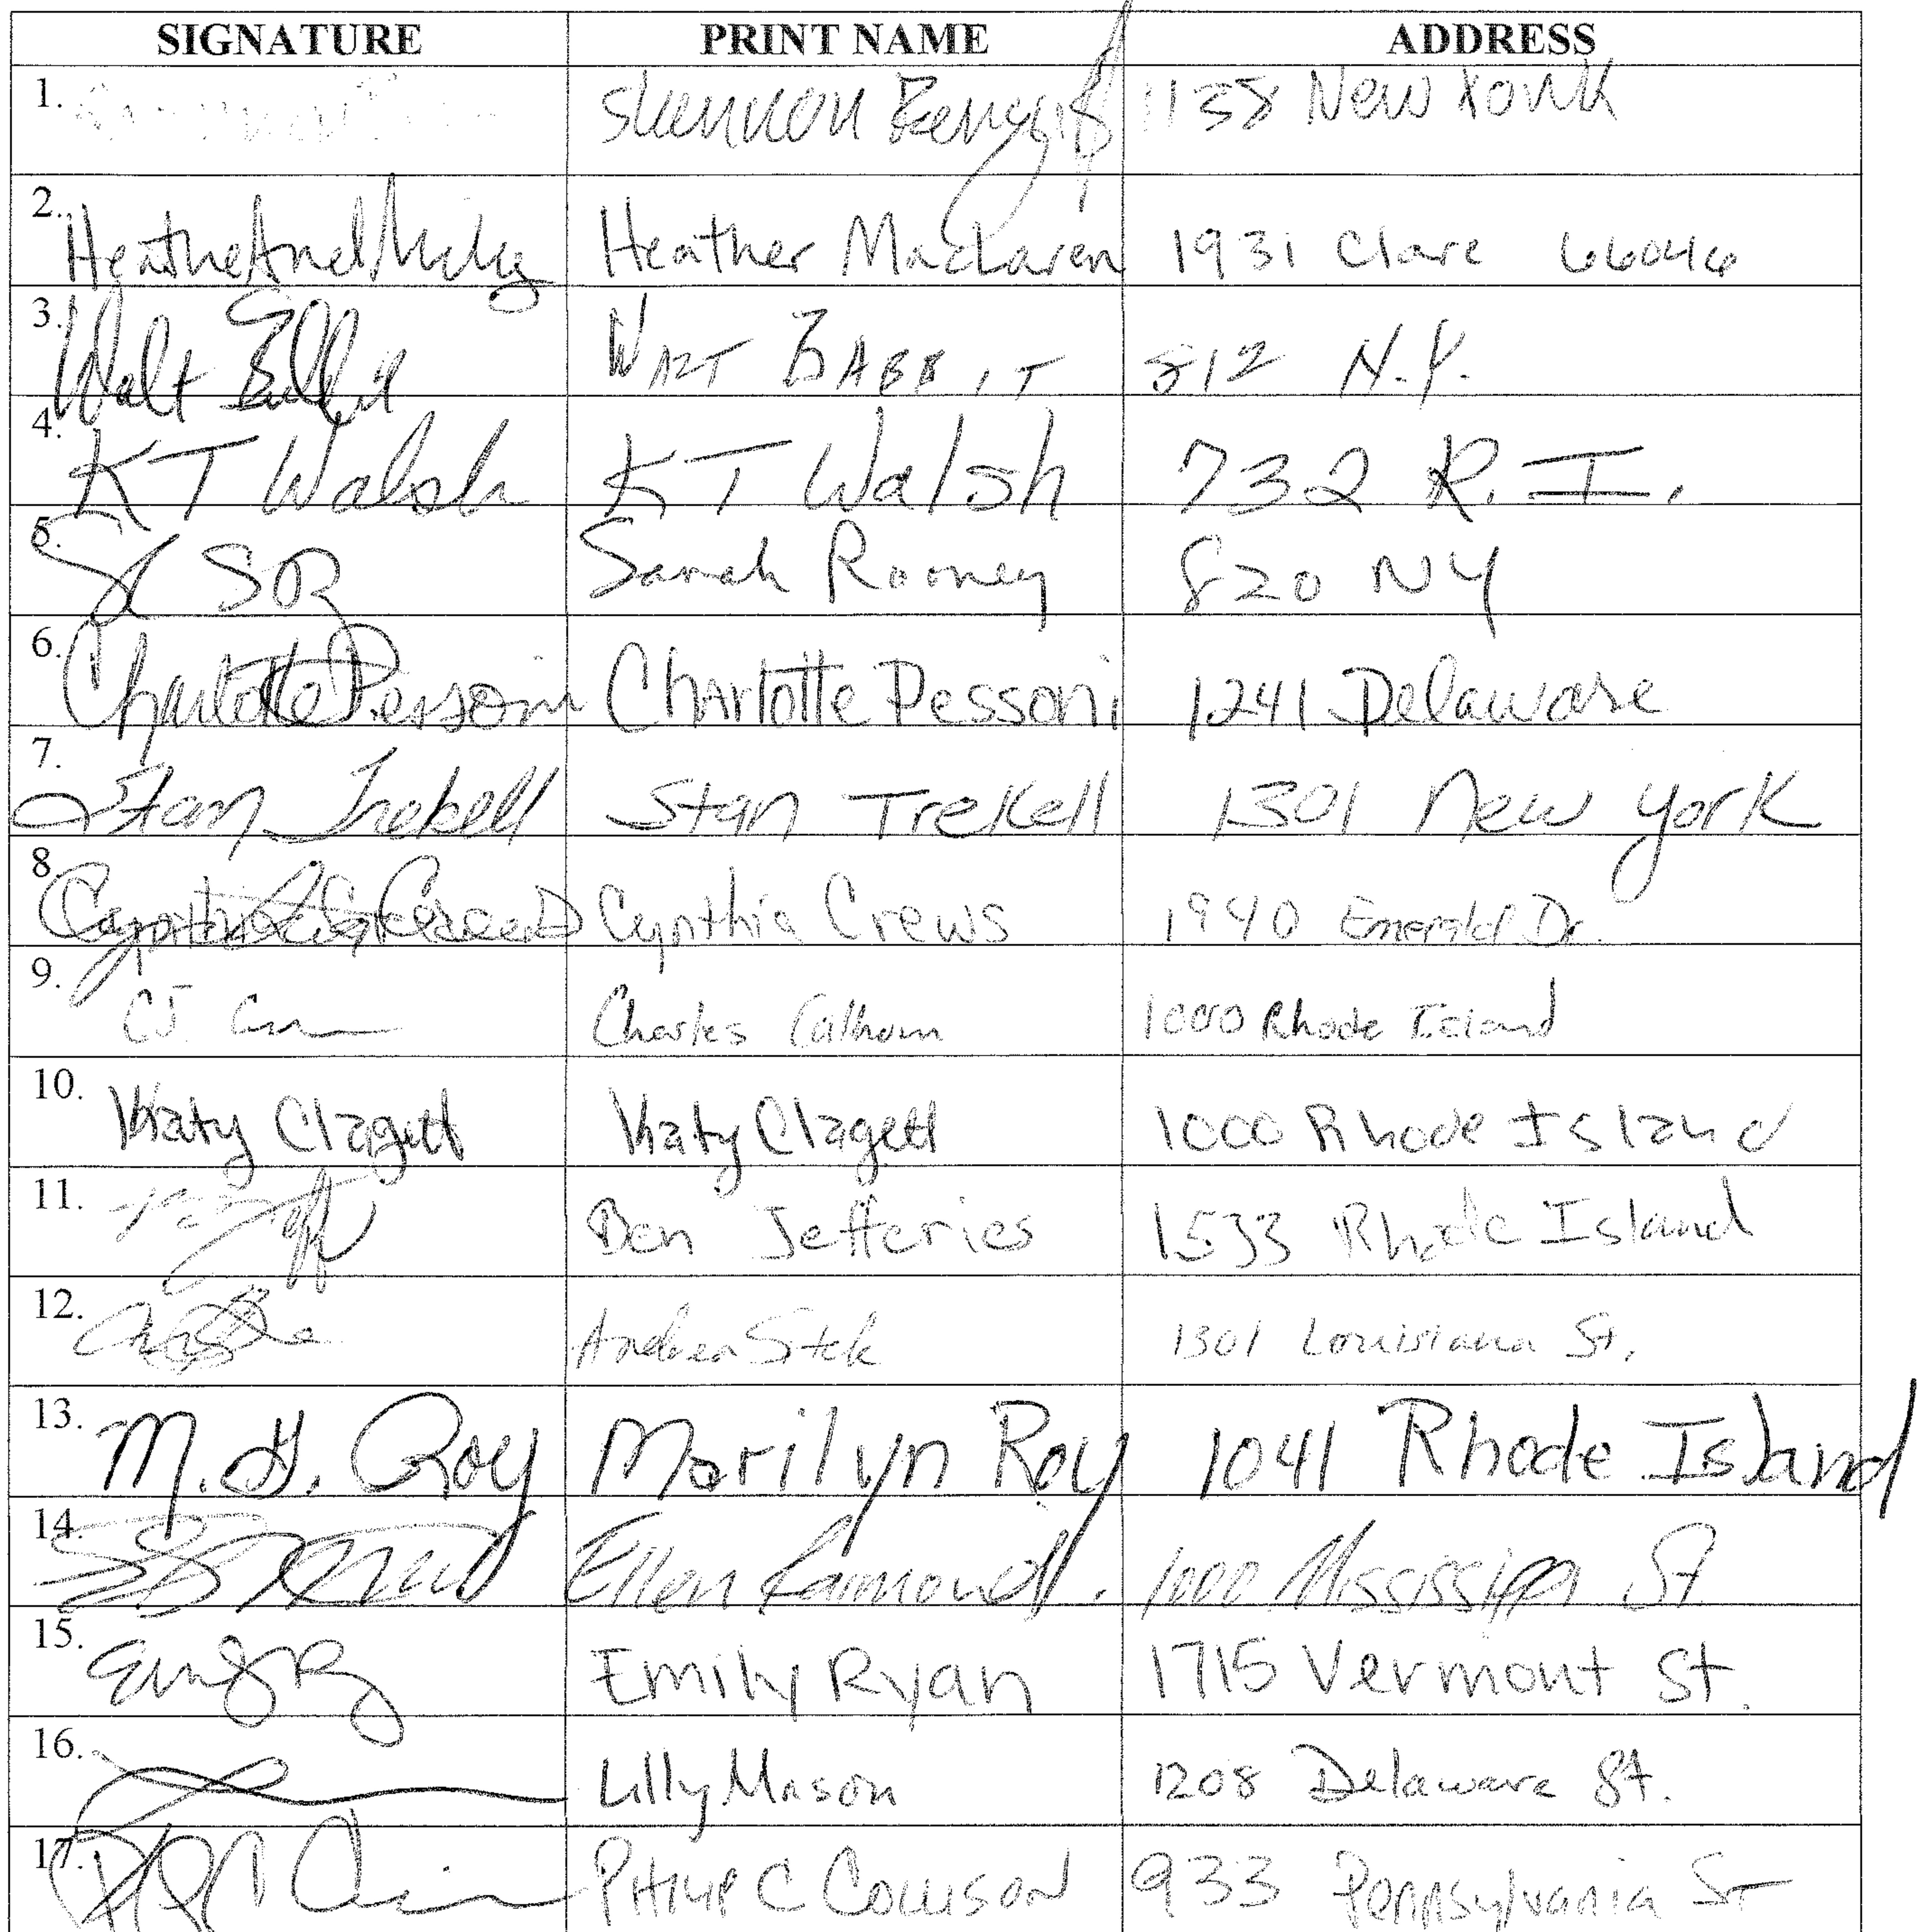 SIGNATURE PRINT NAME ADDRESS
1. Shannon 1138 New York
2. Heather Maclaren 1931 Clare 66046
3. Walt Babbit WALT BABBIT 812 N.Y.
4. KT Walsh KT Walsh 732 R.I.
5. Sarah Rooney 820 NY
6. Charlotte Pessoni Charlotte Pessoni 1241 Delaware
7. Stan Trekell Stan Trekell 1301 New York
8. Cynthia Crews 1940 Emerald Dr.
9. CJ Charles Calhoun 1000 Rhode Island
10. Katy Clagett Katy Clagett 1000 Rhode Island
11. Ben Jefferies 1533 Rhode Island
12. Andrea Sitek 1301 Louisiana St.
13. M. G. Roy Marilyn Roy 1041 Rhode Island
14. Ellen 1000 Mississippi St
15. Emily Ryan 1715 Vermont St.
16. Lilly Mason 1208 Delaware St.
17. PHILIP C COLLISON 933 Pennsylvania ST